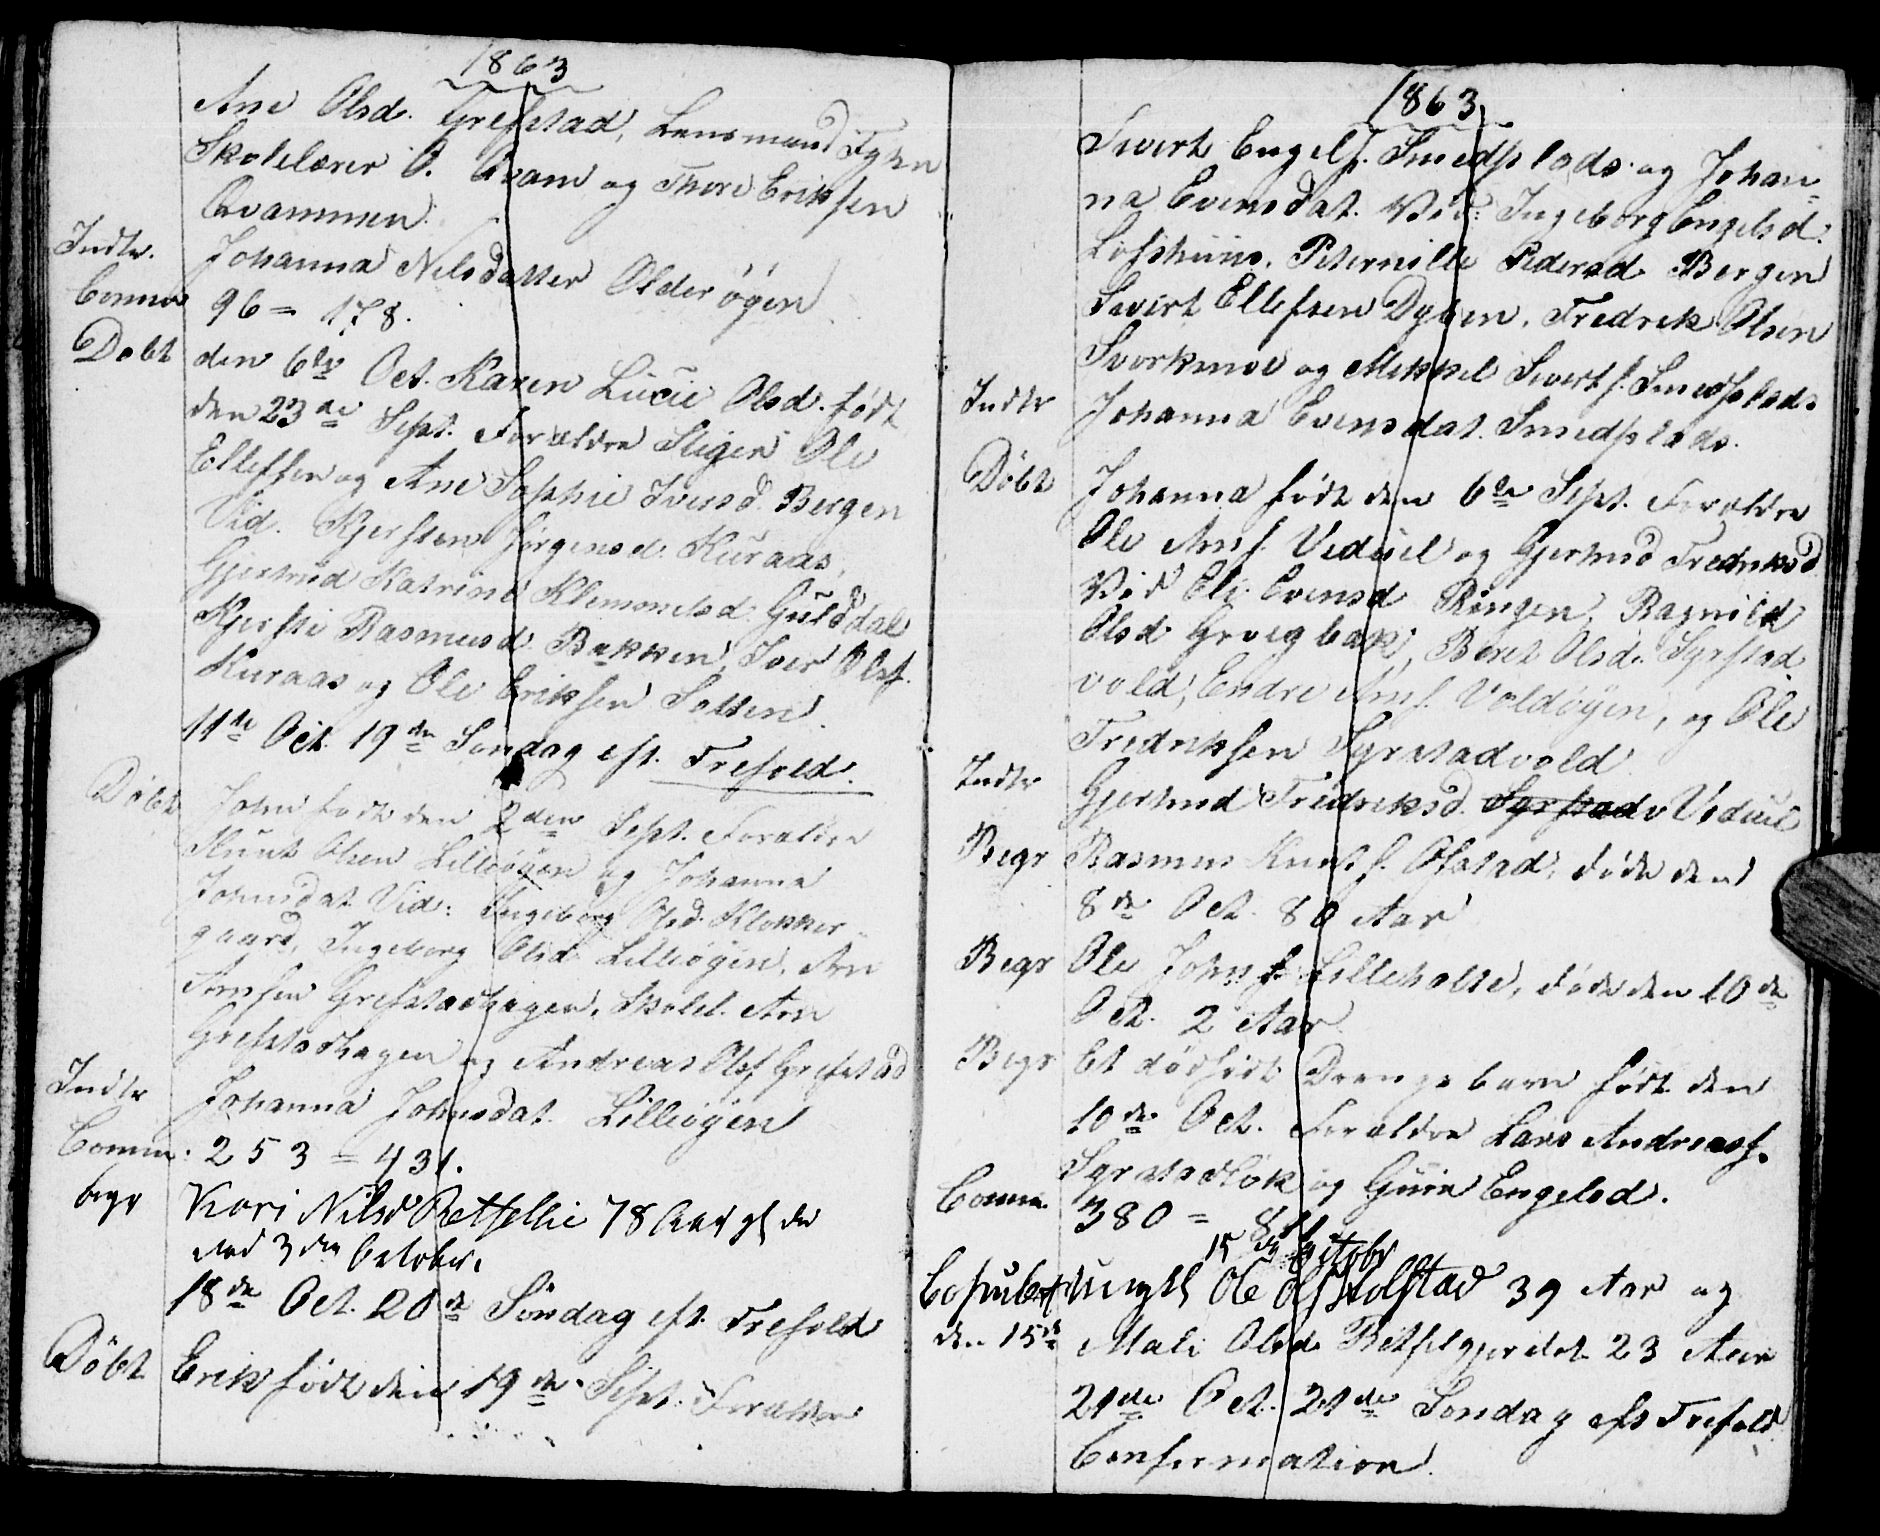 1863
Ane Olsd. Grefstad, Lensmand Fyhn
Skolelærer O. Qvam og Thore Eriksen
Qvammen.
Indtr. Johanna Nilsdatter Olderøyen
Comm 96 = 178.
Døbt den 6te Oct. Karen Lucie Olsd. født
den 23de Sept. Forældre Stiger Ole
Ellefsen og Ane Sophie Iversd. Bergen
Vid. Kjersten Jørgensd. Kuraas,
Gjertrud Katrine Klemmetsd. Gulddal
Kjersti Rasmusd. Bakken, Iver Olsf.
Kuraas og Ole Eriksen
11te Oct. 19de Søndag eft. Trefold.
Døbt John født den 2den Sept. Forældre
Knut Olsen Lilleøyen og Johanna
Johnsdat. Vid: Ingeborg Olsd. Klokker-
gaard, Ingeborg Olsd. Lilleøyen, Arn
Arnsen Grefstadhagen, Skolel. Arn
Grefstadhagen og Andreas Olsf Grefstad
Indtr Johanna Johnsdat. Lilleøyen
Comm. 253 = 431.
begr Kari Nilsd Retfellie 78 Aar gl. dø
død 3die October.
18de Oct. 20de Søndag eft. Trefold
Døbt Erik født den 19de Sept. Forældre
1863
Sivert Engelf. Smedsplads og Johan-
na Evensdat. Vid: Ingeborg Engelsd.
Lofshuus, Peternille Pedersd Bergen
Sivert Ellefsen Dyben, Fredrik Olsen
Svorkmoe og Mikkel Sivertf. Smedsplads
Indtr Johanna Evensdat. Smedsplads.
Døbt Johanna født den 6te Sept. Forældre
Ole Arnf. Veduel og Gjertrud Fredriksd
Vid Eli Evensd Ringen, Ragnild
Olsd Grvegbak, Beret Olsd. Syrstad
vold, Endre Arnf. Voldøyen, og Ole
Fredriksen Syrstadvold
Indtr Gjertrud Fredriksd. Syrstadv Veduel
Begr Rasmus Knutsf. Ofstad, døde den
8de Oct. 80 Aar
Begr Ole Johnsf. Lilleholte, døde den 10de
Oct. 2 Aar
Begr Et dødfødt Drengebarn født den
10de Oct. Forældre Lars Andreasf.
Syrstadbak og Guru Engelsd.
Comm. 380 = 811
15de October
Copuleret ungkl Ole Olsf Stolstad 39 Aar og
den 15de Mali Olsd. Retfelgjerdet 23 Aar
21de Oct. 21de Søndag eft Trefold
Conformation.